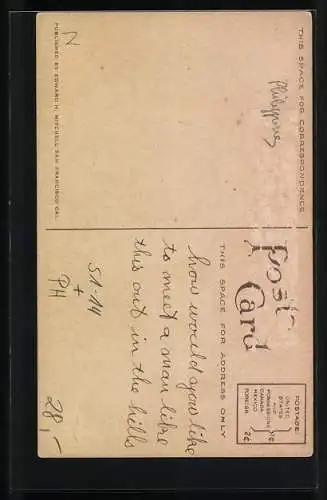 THIS SPACE FOR CORRESPONDENCE
Philippines
N
PUBLISHED BY EDWARD H. MITCHELL SAN FRANCISCO CAL.
Post
Card
THIS SPACE FOR ADDRESS ONLY
POSTAGE
UNITED
STATES
AND
POSSESSIONS
CANADA
MEXICO
1c
FOREIGN 2c
how would you like
to meet a man like
this out in the hills
51-14
+
PH
28,-